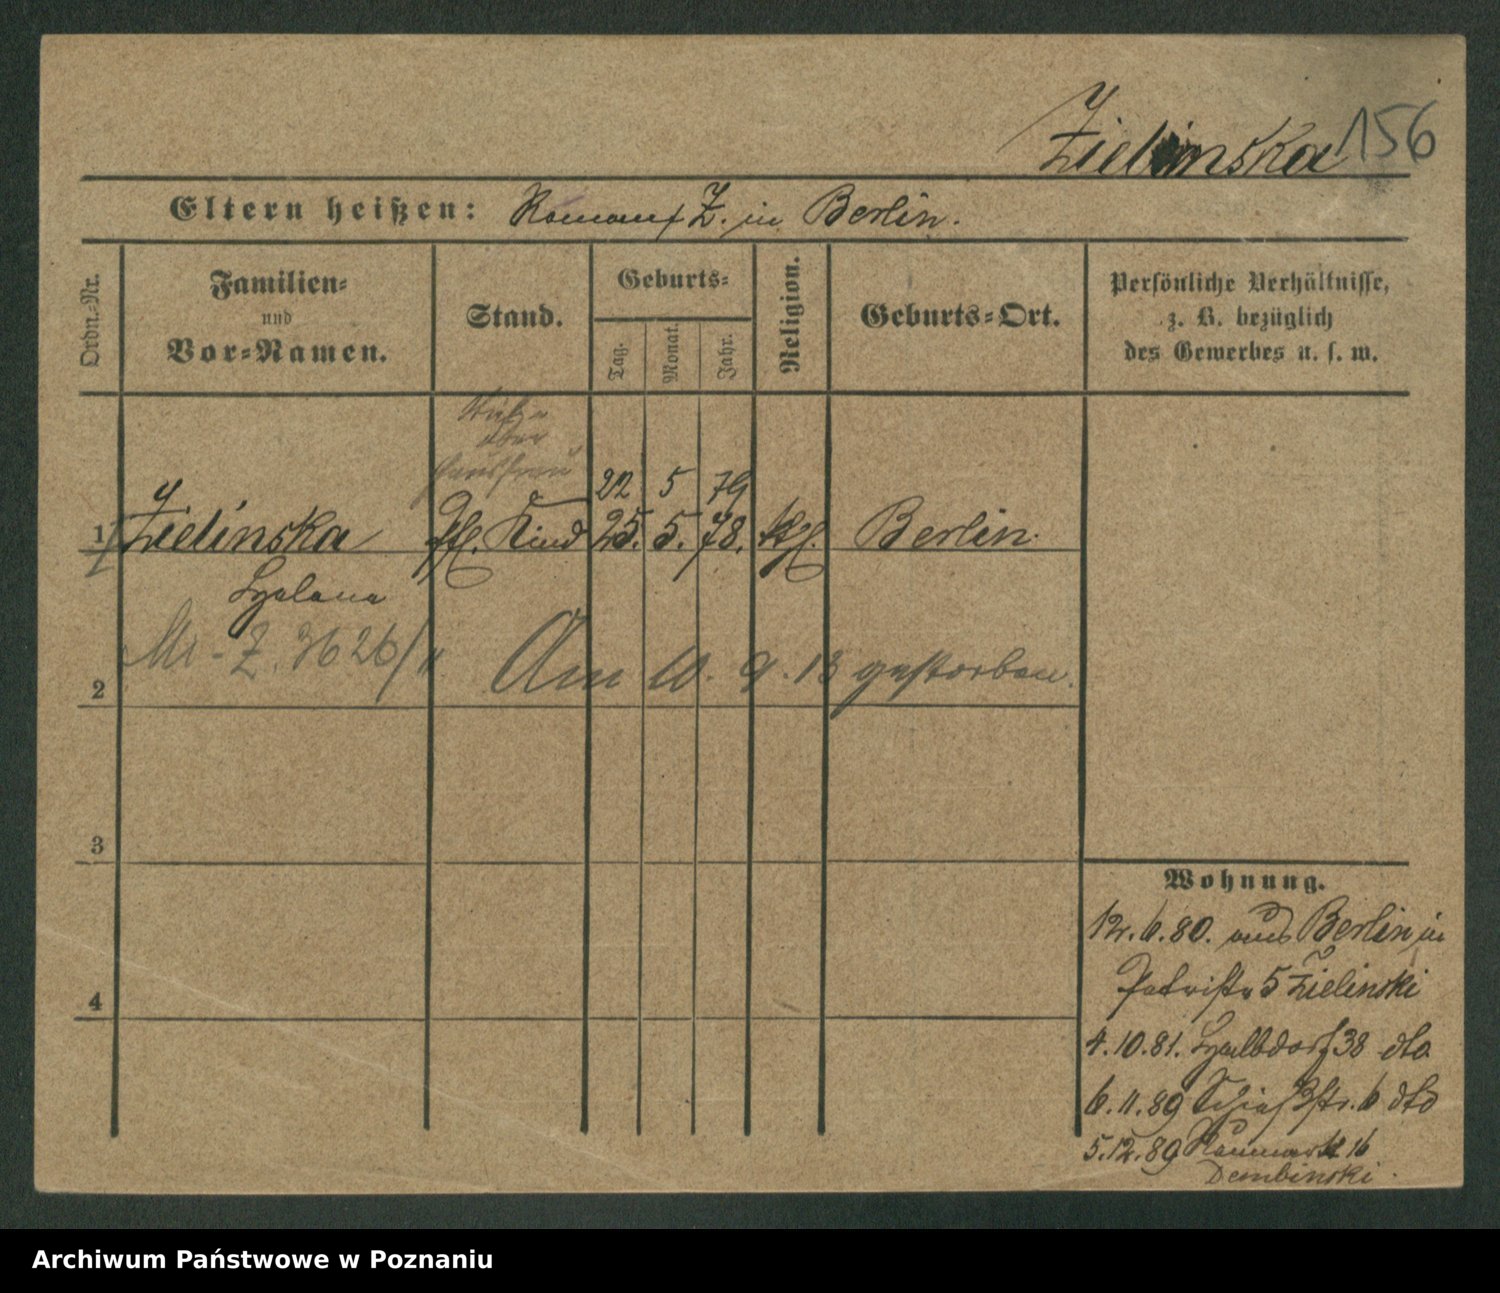 Zielinska 156
Eltern heißen: Roman Z. in Berlin.
Ordn.=Nr.
Familien=
und
Vor=Namen.
Stand.
Geburts=
Tag.
Monat.
Jahr.
Religion.
Geburts=Ort.
Persönliche Verhältnisse,
z. B. bezüglich
des Gewerbes u. s. w.
22 5 79
1 Zielinska Kind 25. 5. 78. Berlin.
Helena
Z. 3626
2 Am 10. 9. 13 gestorben.
3
4
Wohnung.
12. 6. 80. aus Berlin in
5 Zielinski
4. 10. 81. Halbdorf 38 dto
6. 11. 89 Schießstr. 6 dto
5. 12. 89 16
Dembinski.
Archiwum Państwowe w Poznaniu